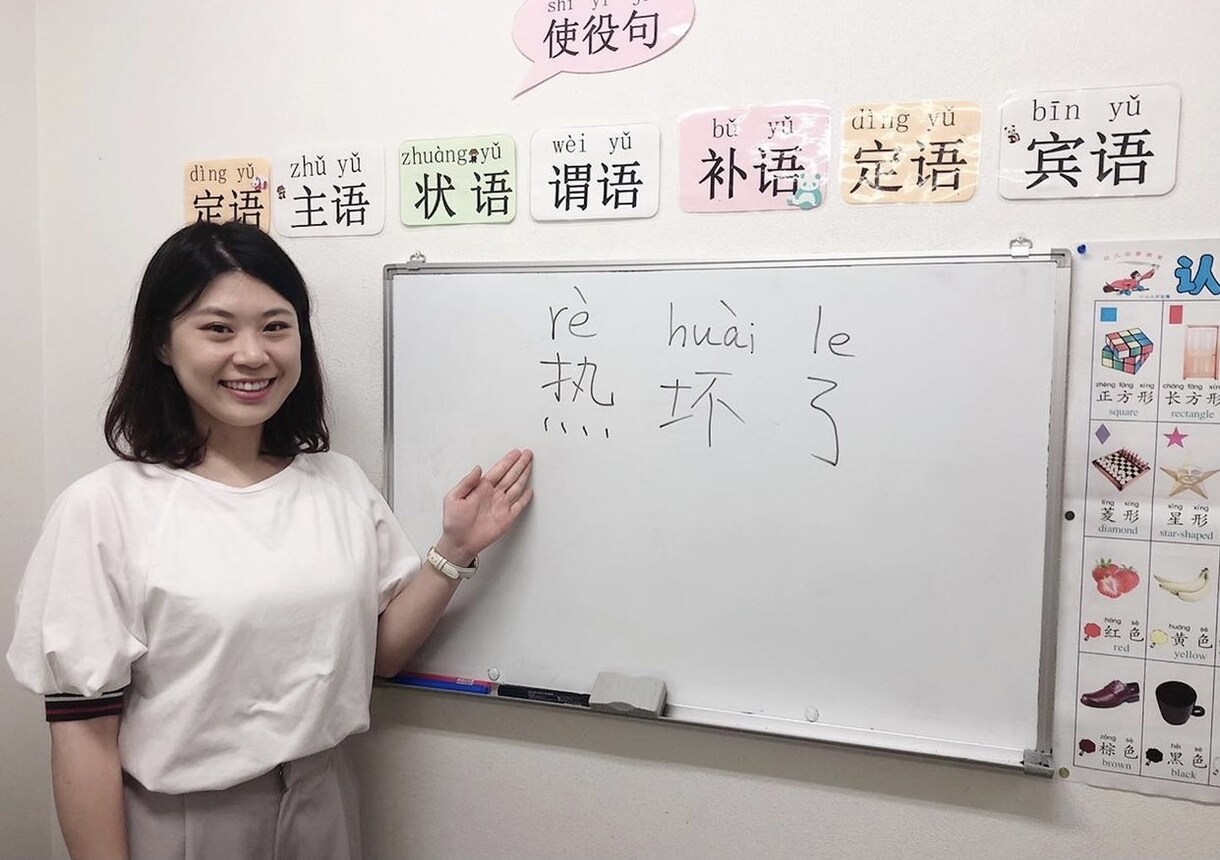 使役句
dìng yǔ
定语
zhǔ yǔ
主语
zhuàng yǔ
状语
wèi yǔ
谓语
bǔ yǔ
补语
dìng yǔ
定语
bīn yǔ
宾语
rè huài le
热 坏 了
认
zhèng fāng xíng
正方形
square
cháng fāng xíng
长方形
rectangle
líng xíng
菱形
diamond
xīng xíng
星形
star-shaped
hóng sè
红色
red
huáng sè
黄色
yellow
zōng sè
棕色
brown
hēi sè
黑色
black